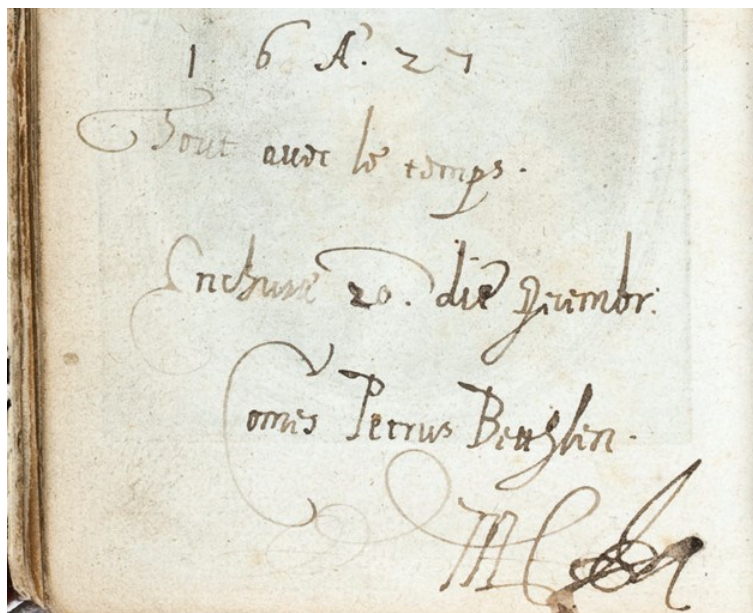 1 6 A. 27
Tout avec le temps.
20. die Decembr.
Comes Petrus Betthlen.